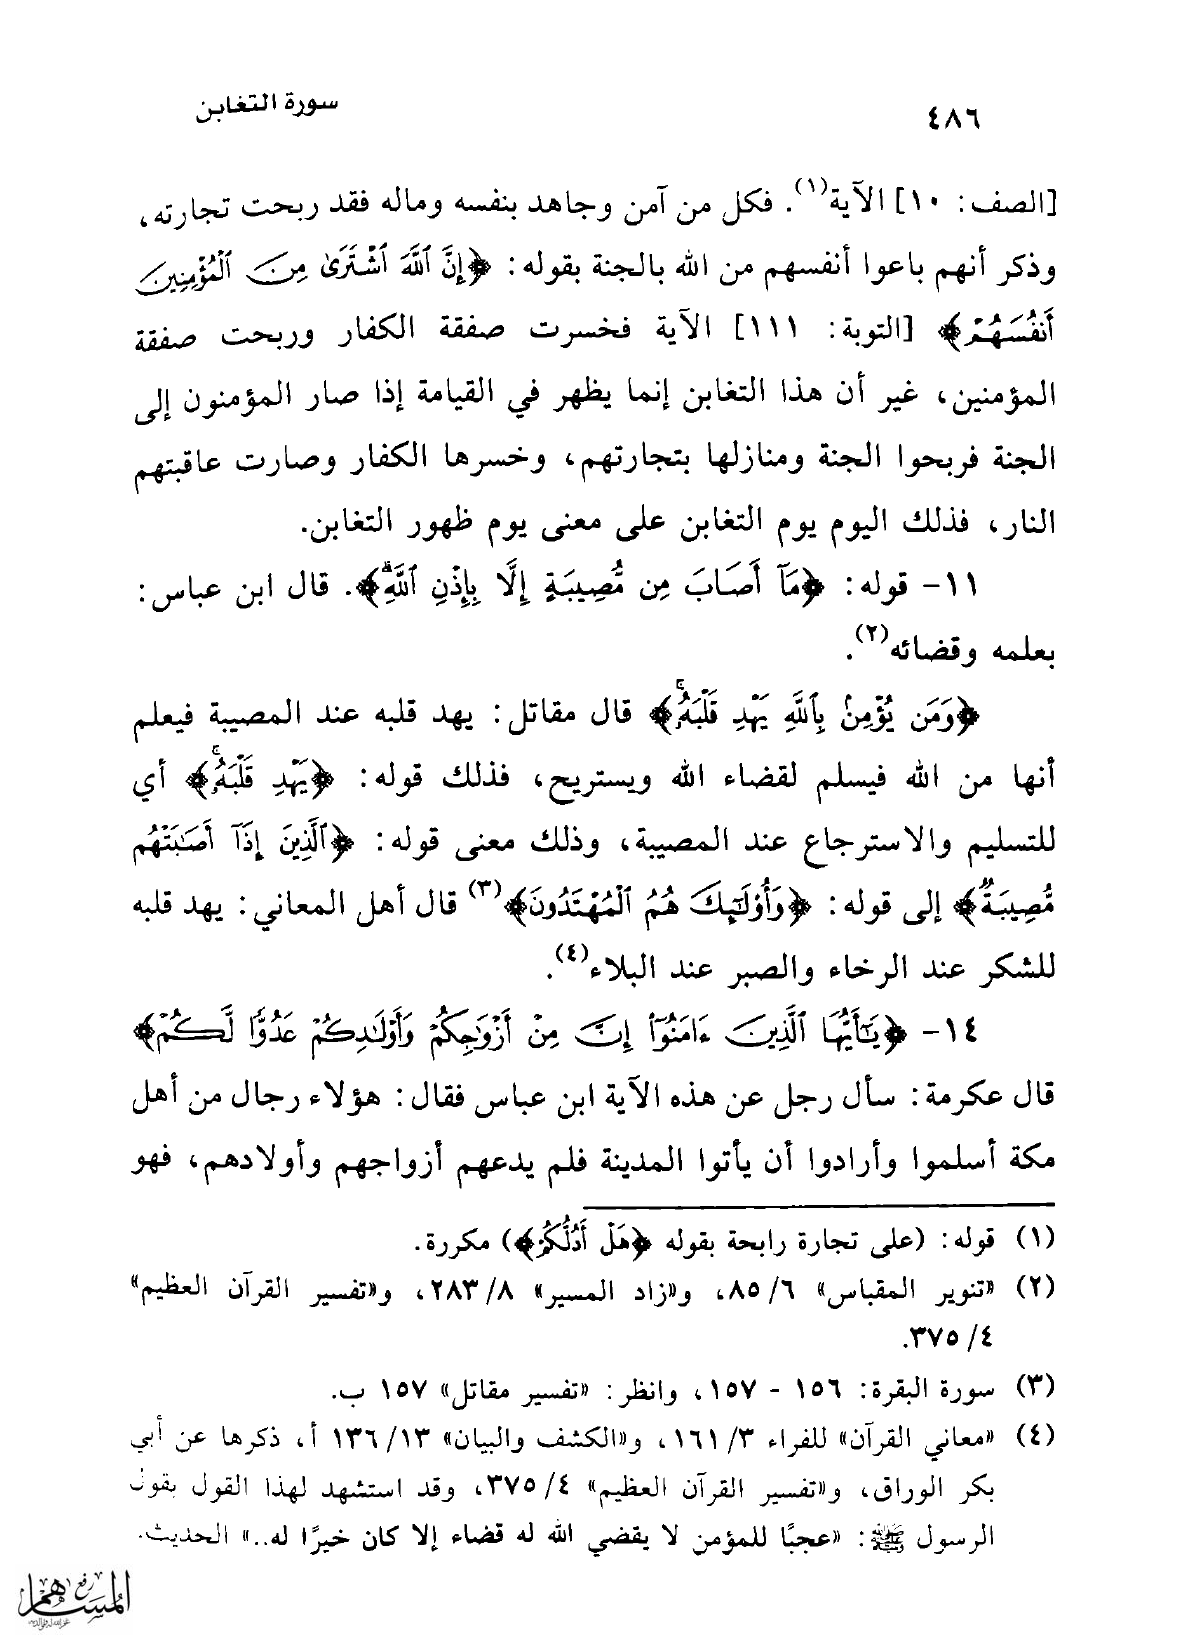 ٤٨٦
سورة التغابن
[الصف: ١٠] الآية(١). فكل من آمن وجاهد بنفسه وماله فقد ربحت تجارته،
وذكر أنهم باعوا أنفسهم من الله بالجنة بقوله: ﴿إِنَّ ٱللَّهَ ٱشْتَرَىٰ مِنَ ٱلْمُؤْمِنِينَ
أَنفُسَهُمْ﴾ [التوبة: ١١١] الآية فخسرت صفقة الكفار وربحت صفقة
المؤمنين، غير أن هذا التغابن إنما يظهر في القيامة إذا صار المؤمنون إلى
الجنة فربحوا الجنة ومنازلها بتجارتهم، وخسرها الكفار وصارت عاقبتهم
النار، فذلك اليوم يوم التغابن على معنى يوم ظهور التغابن.
١١- قوله: ﴿مَآ أَصَابَ مِن مُّصِيبَةٍ إِلَّا بِإِذْنِ ٱللَّهِۗ﴾. قال ابن عباس:
بعلمه وقضائه(٢).
﴿وَمَن يُؤْمِنۢ بِٱللَّهِ يَهْدِ قَلْبَهُۥۚ﴾ قال مقاتل: يهد قلبه عند المصيبة فيعلم
أنها من الله فيسلم لقضاء الله ويستريح، فذلك قوله: ﴿يَهْدِ قَلْبَهُۥۚ﴾ أي
للتسليم والاسترجاع عند المصيبة، وذلك معنى قوله: ﴿ٱلَّذِينَ إِذَآ أَصَٰبَتْهُم
مُّصِيبَةٌ﴾ إلى قوله: ﴿وَأُوْلَٰٓئِكَ هُمُ ٱلْمُهْتَدُونَ﴾(٣) قال أهل المعاني: يهد قلبه
للشكر عند الرخاء والصبر عند البلاء(٤).
١٤- ﴿يَٰٓأَيُّهَا ٱلَّذِينَ ءَامَنُوٓاْ إِنَّ مِنْ أَزْوَٰجِكُمْ وَأَوْلَٰدِكُمْ عَدُوًّا لَّكُمْ﴾
قال عكرمة: سأل رجل عن هذه الآية ابن عباس فقال: هؤلاء رجال من أهل
مكة أسلموا وأرادوا أن يأتوا المدينة فلم يدعهم أزواجهم وأولادهم، فهو
(١) قوله: (على تجارة رابحة بقوله ﴿هَلْ أَدُلُّكُمْ﴾) مكررة.
(٢) «تنوير المقباس» ٦/ ٨٥، و«زاد المسير» ٨/ ٢٨٣، و«تفسير القرآن العظيم»
٤/ ٣٧٥.
(٣) سورة البقرة: ١٥٦ - ١٥٧، وانظر: «تفسير مقاتل» ١٥٧ ب.
(٤) «معاني القرآن» للفراء ٣/ ١٦١، و«الكشف والبيان» ١٣/ ١٣٦ أ، ذكرها عن أبي
بكر الوراق، و«تفسير القرآن العظيم» ٤/ ٣٧٥، وقد استشهد لهذا القول بقول
الرسول ﷺ: «عجبًا للمؤمن لا يقضي الله له قضاء إلا كان خيرًا له..» الحديث.